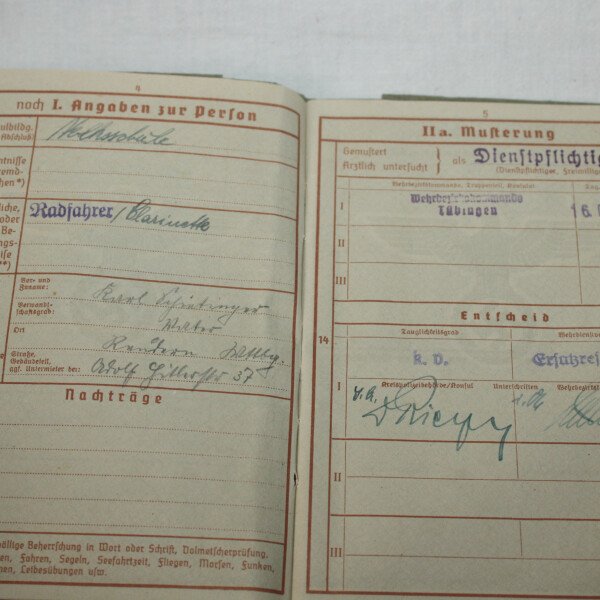 4
noch I. Angaben zur Person
ulbildg.
Abschluß)
Volksschule
ntnisse
remd-
chen*)
liche,
oder
Be-
ngs-
ise
**)
Radfahrer / Clarinette
Vor- und
Zuname:
Karl
Verwandt-
schaftsgrad:
Vater
Ort
Straße,
Gebäudeteil,
ggf. Untermieter bei:
Adolf Hitlerstr 37
Nachträge
völlige Beherrschung in Wort oder Schrift, Dolmetscherprüfung.
en, Fahren, Segeln, Seefahrtzeit, Fliegen, Morsen, Funken,
nen, Leibesübungen usw.
5
IIa. Musterung
Gemustert
Ärztlich untersucht } als Dienstpflichtig
(Dienstpflichtiger, Freiwillige
Wehrbezirkskommando, Truppenteil, Konsulat
Tag
I
Wehrbezirkskommando
Tübingen
16.
II
III
Entscheid
14
Tauglichkeitsgrad
Wehrdienstv
k. v.
Ersatzres
I
Kreispolizeibehörde/Konsul
Unterschriften
Wehrbezirk
II
III